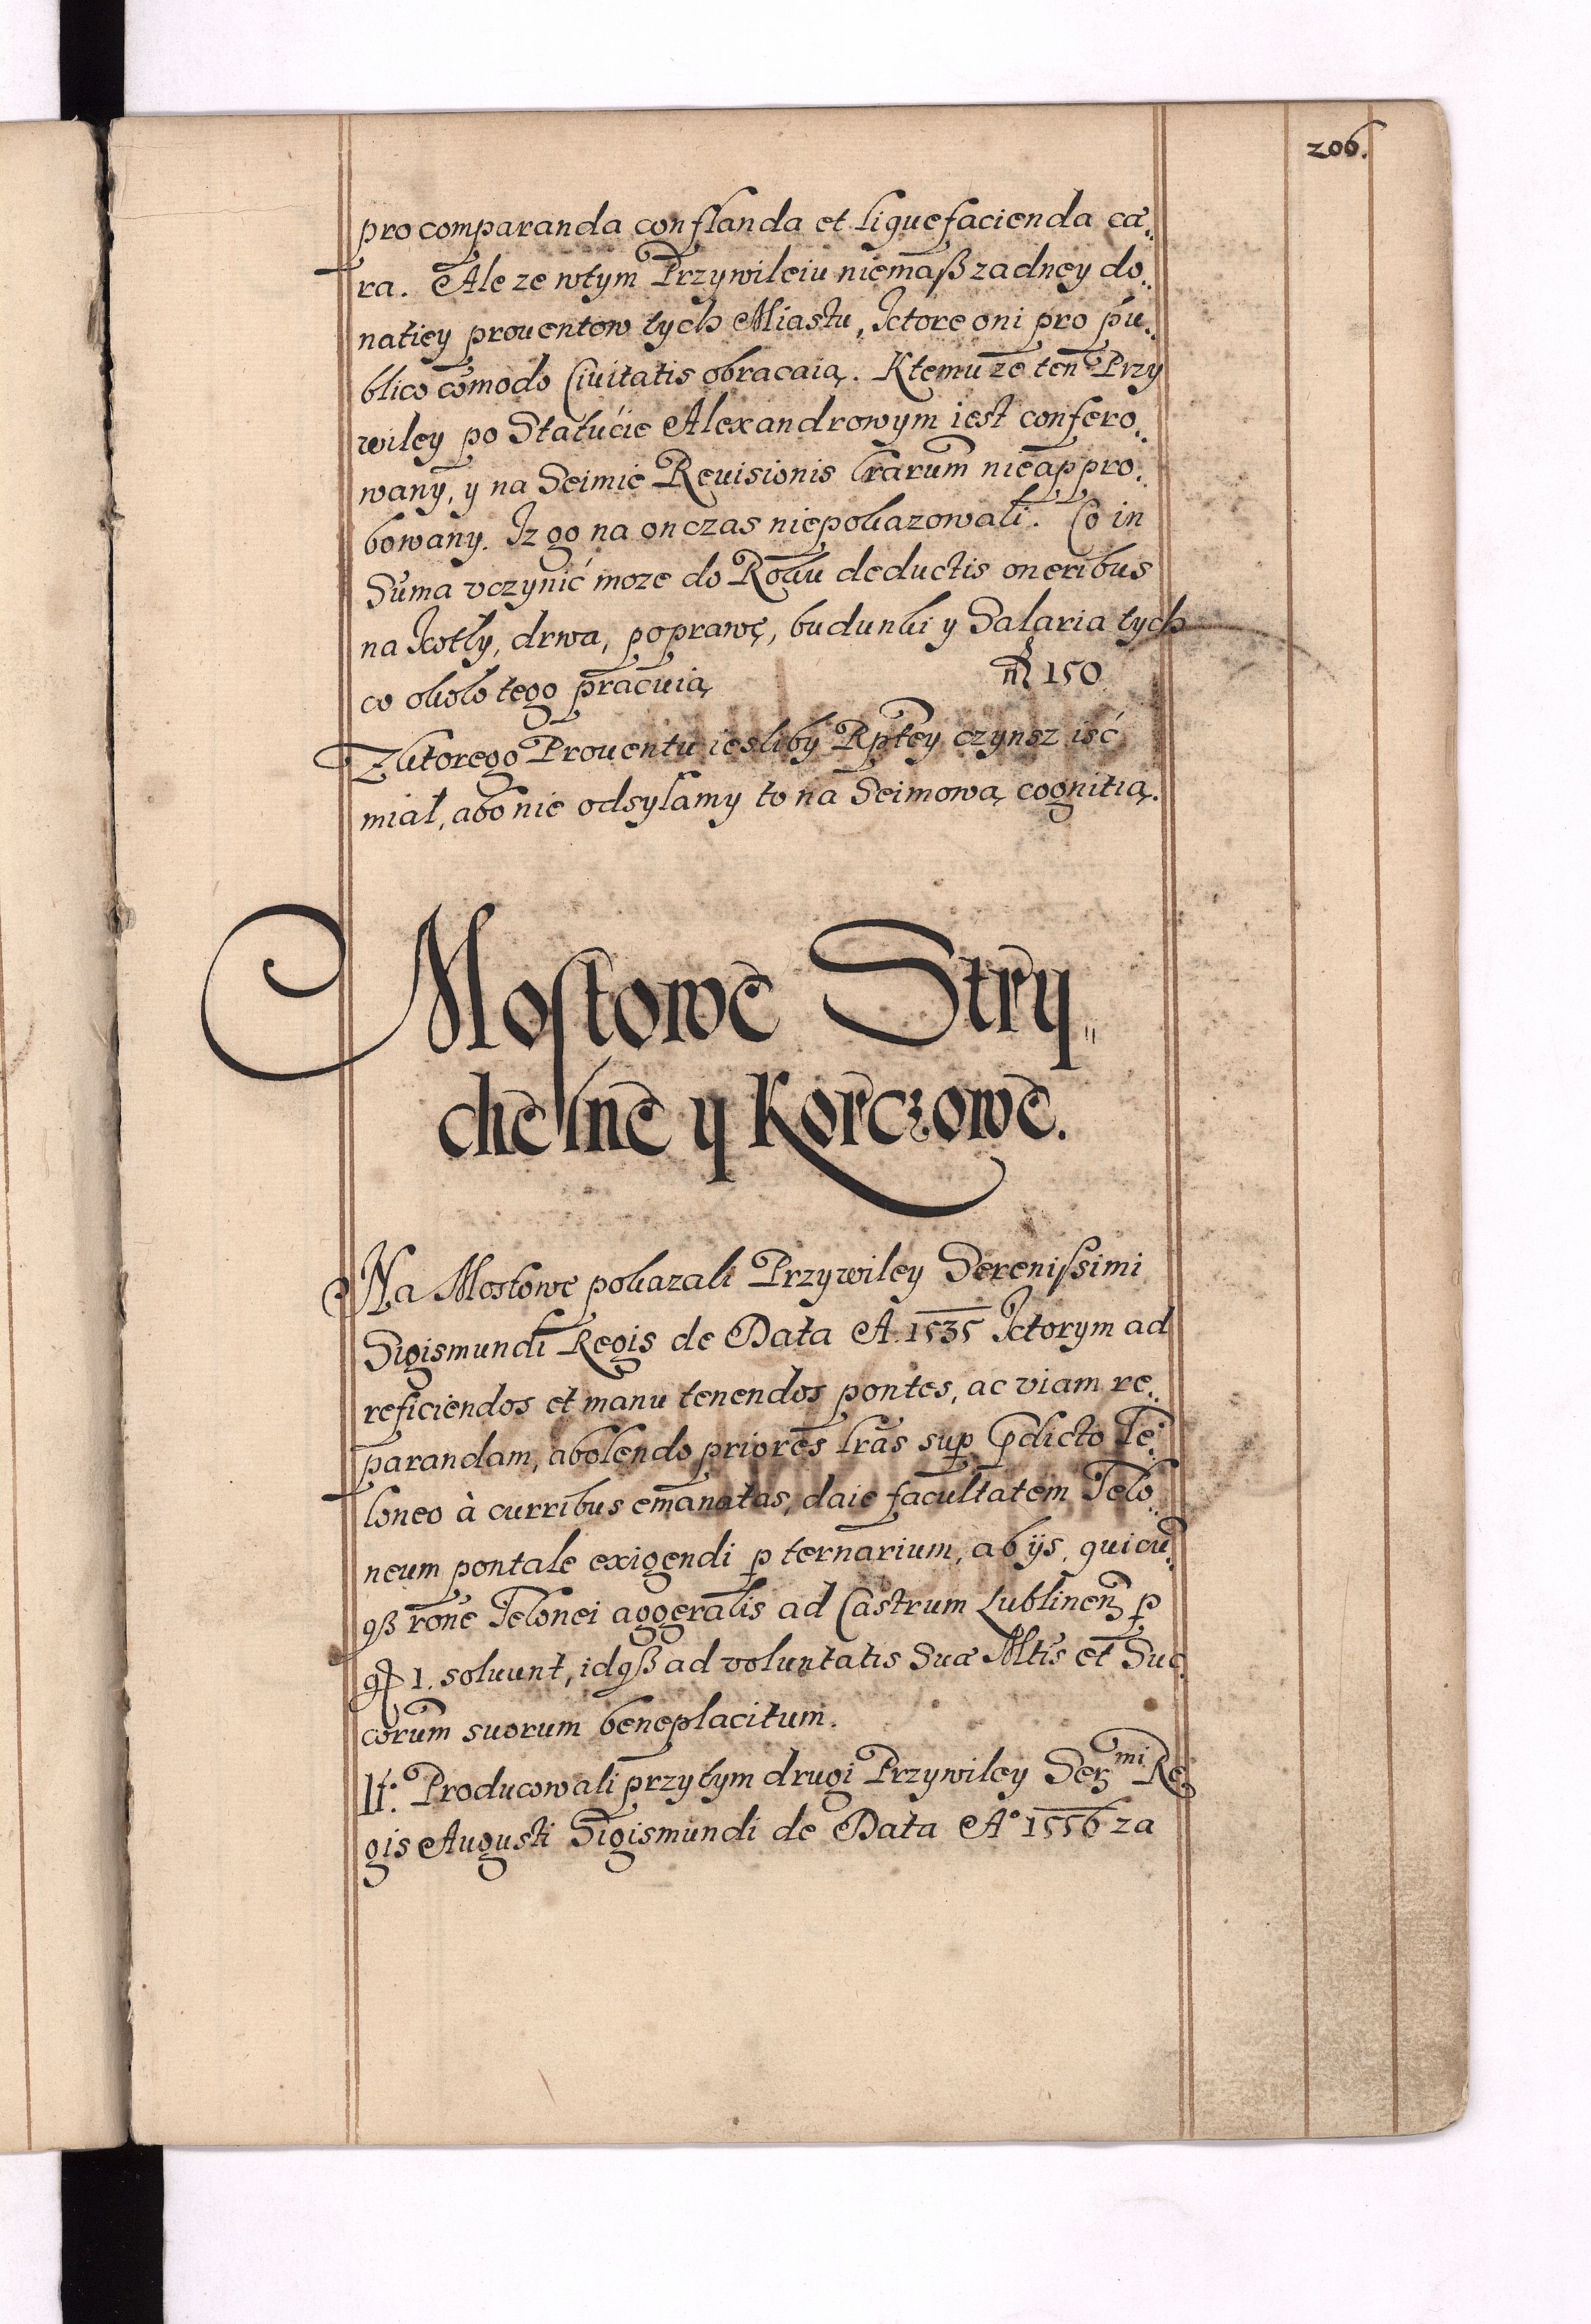 206.
pro comparanda conflanda et liquefacienda cæ„
ra. Ale ze wtym Przywileiu niemaß zadney do„
natiey prouentow tych Miastu, ktore oni pro pu„
blico com̄odo Ciuitatis obracaią. Ktemu ze ten Przy
wiley po Statucie Alexandrowym iest confero„
wany, y na Seimie Reuisionis lrarum nieappro„
bowany. Iz go na onczas niepokazowali. Co in
Suma vczynić moze do Roku deductis oneribus
na kotły, drwa, poprawę, budunki y Salaria tych
co około tego pracuią 150
Zktorego Prouentu iesliby Rptey czynsz iść
miał, abo nie odsyłamy to na Seimową cognitią.
Mostowe Stry„
chelne y Korczowe.
Na Mostowe pokazali Przywiley Serenissimi
Sigismundi Regis de Data A. 1535 ktorym ad
reficiendos et manu tenendos pontes, ac viam re„
parandam, abolendo priores lrās sup p̄dicto Te„
loneo à curribus emanatas, daie facultatem Telo„
neum pontale exigendi p ternarium, ab ijs, quicū„
qß rōne Telonei aggeralis ad Castrum Lublinen p
gr 1. soluunt, idqß ad voluntatis Suæ Mltis et Suc
corum suorum beneplacitum.
It: Producowali przytym drugi Przywiley Serᵐⁱ Re
gis Augusti Sigismundi de Data A° 1556 za